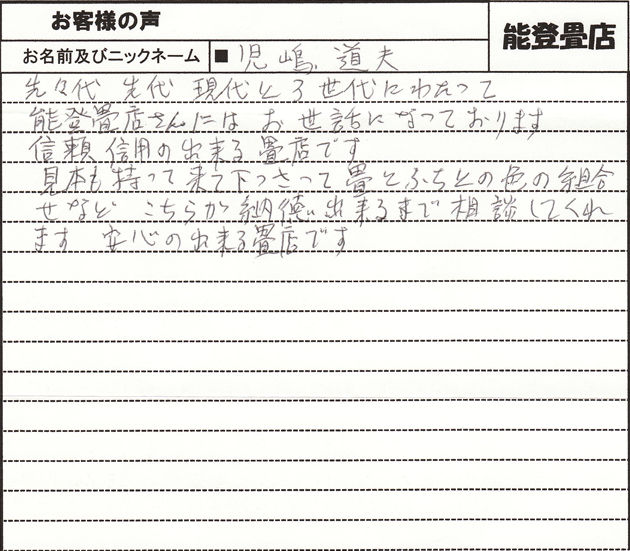 お客様の声
能登畳店
お名前及びニックネーム ■ 児嶋 道夫
先々代 先代 現代と3世代にわたって
能登畳店さんには お世話になっております
信頼 信用の出来る畳店です
見本も持って来て下っさって畳とふちとの色の組合
せなど こちらが納徳い出来るまで相談してくれ
ます 安心の出来る畳店です